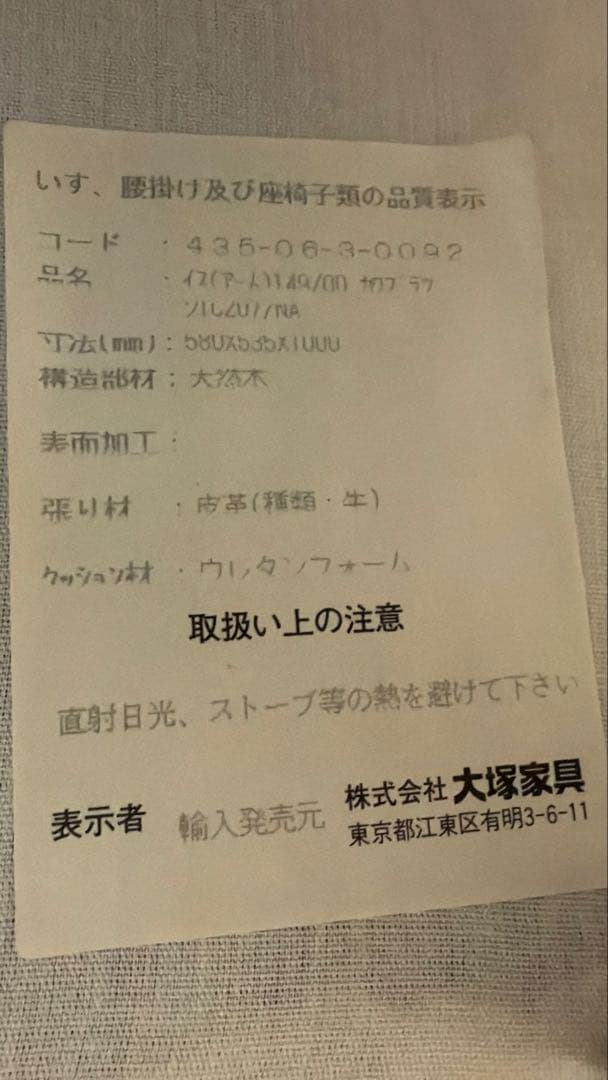 いす、腰掛け及び座椅子類の品質表示
コード ・ 435-06-3-0092
品名 ・ ｲｽ(ｱｰﾑ)
寸法(mm) : 580X535X1000
構造部材 : 天然木
表面加工 :
張り材 ・ 皮革(種類・牛)
ｸｯｼｮﾝ材 ・ ウレタンフォーム
取扱い上の注意
直射日光、ストーブ等の熱を避けて下さい
表示者 輸入発売元 株式会社 大塚家具
東京都江東区有明3-6-11